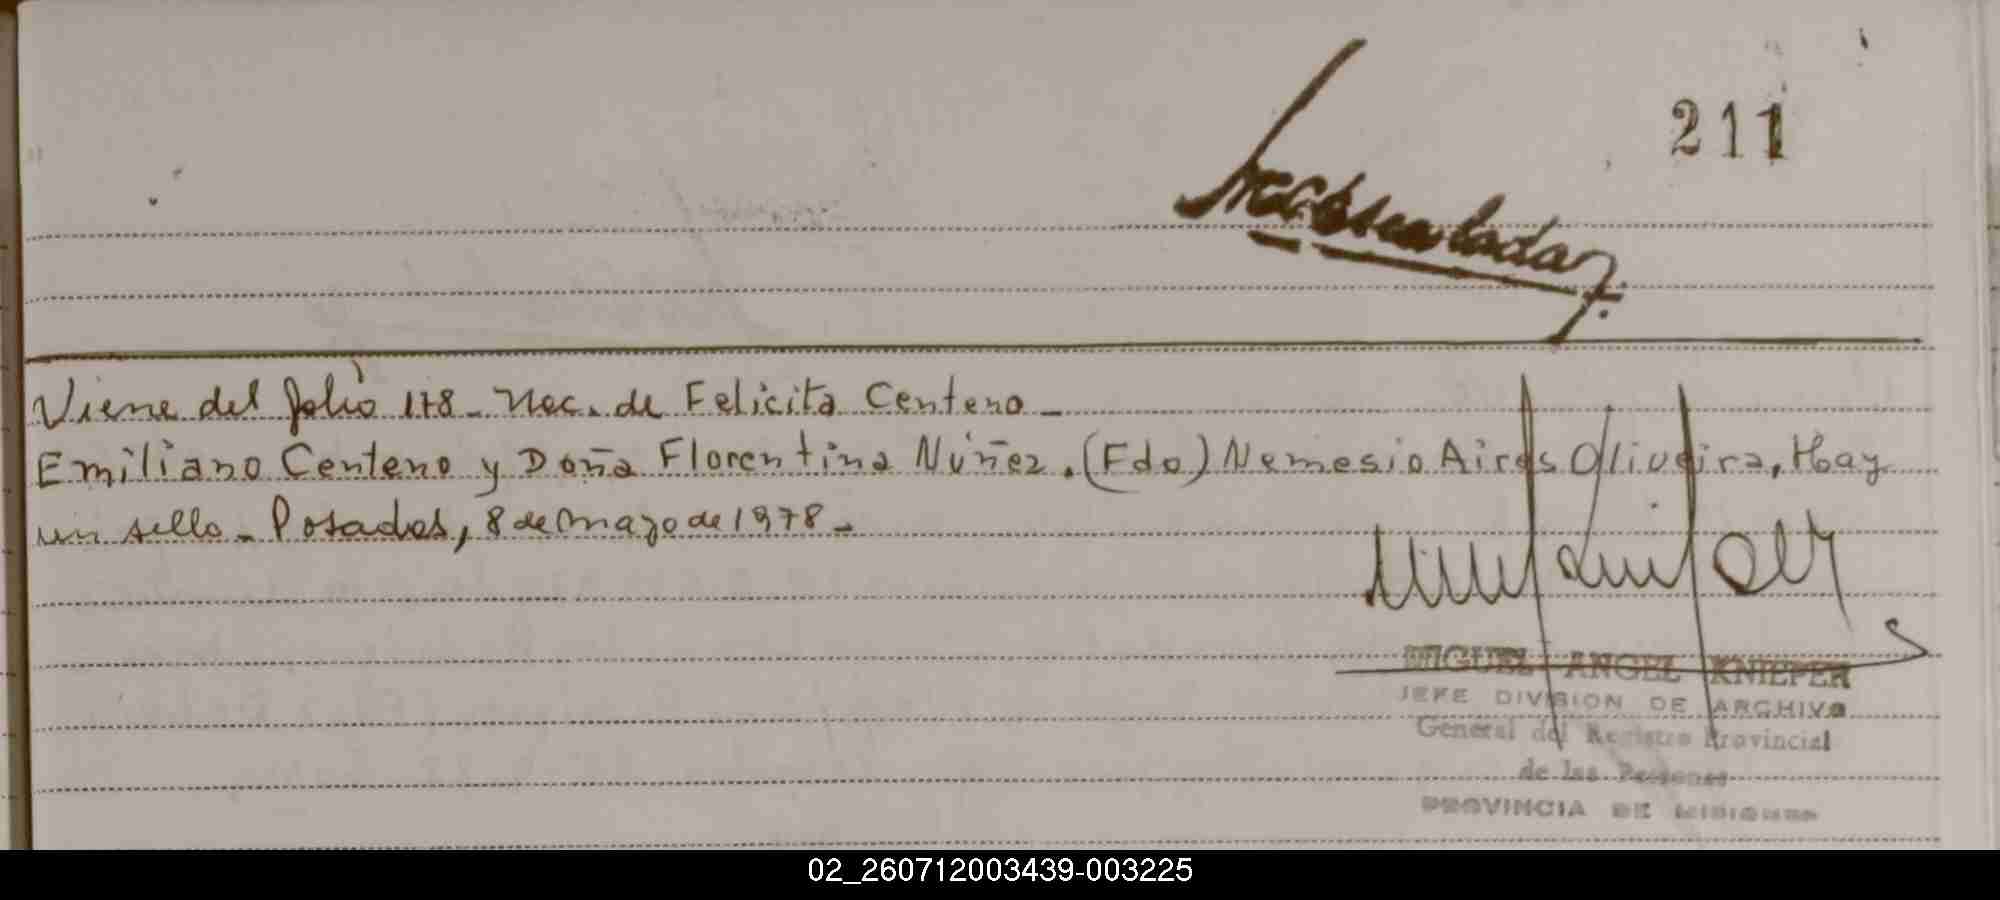 211
Viene del folio 178. Nac. de Felicita Centeno _
Emiliano Centeno y Doña Florentina Núñez. (Fdo) Nemesio Aires Oliveira, Hay
un sello - Posadas, 8 de mayo de 1978 -
MIGUEL ANGEL KNIEPER
JEFE DIVISION DE ARCHIVO
General del Registro Provincial
de las Personas
PROVINCIA DE MISIONES
02_260712003439-003225